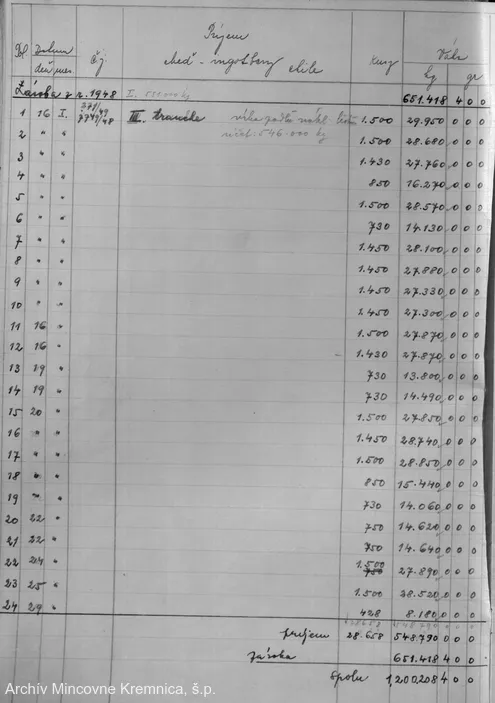 Príjem
Dátum Váha
Čj. meď - ingoty chile Kusy
deň mes. kg gr
Zásoba z r. 1948 651.418 4 0 0
1 16 I. 371/49 III. tranža váha podľa nákl. listu 1.500 29.950 0 0 0
7741/48
2 " " účet. 546.000 kg 1.500 28.680 0 0 0
3 " " 1.430 27.760 0 0 0
4 " " 850 16.270 0 0 0
5 " " 1.500 28.570 0 0 0
6 " " 730 14.130 0 0 0
7 " " 1.450 28.100 0 0 0
8 " " 1.450 27.880 0 0 0
9 " " 1.450 27.330 0 0 0
10 " " 1.450 27.300 0 0 0
11 16 " 1.500 27.870 0 0 0
12 16 " 1.430 27.870 0 0 0
13 19 " 730 13.800 0 0 0
14 19 " 730 14.490 0 0 0
15 20 " 1.500 27.850 0 0 0
16 " " 1.450 28.740 0 0 0
17 " " 1.500 28.850 0 0 0
18 " " 850 15.440 0 0 0
19 " " 730 14.060 0 0 0
20 22 " 750 14.620 0 0 0
21 22 " 750 14.640 0 0 0
22 24 " 1.500 27.890 0 0 0
750
23 25 " 1.500 28.520 0 0 0
24 29 " 428 8.180 0 0 0
28658 548790
príjem 28.658 548.790 0 0 0
zásoba 651.418 4 0 0
spolu 1,200.208 4 0 0
Archív Mincovne Kremnica, š.p.